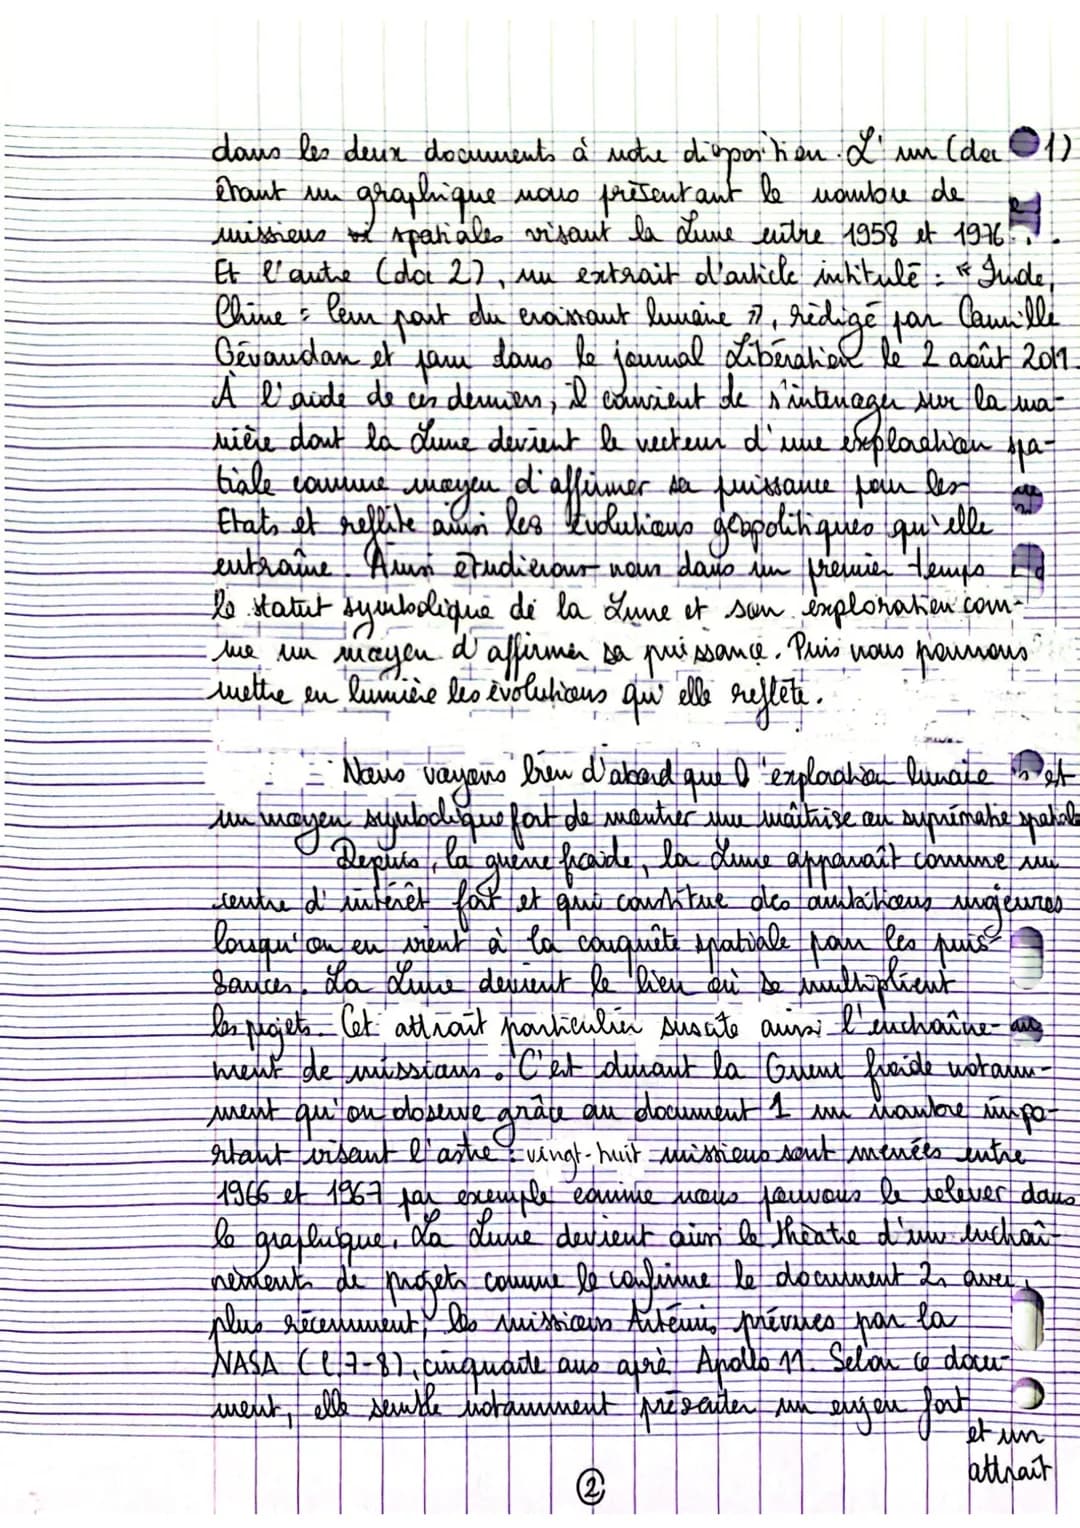 dans les deux documents à notre disposition. L'un (doc 1)
étant un graphique nous présentant le nombre de
missions spatiales visant la Lune entre 1958 et 1976.
Et l'autre (doc 2), un extrait d'article intitulé : « Inde,
Chine : leur part du croissant lunaire », rédigé par Camille
Gévaudan et paru dans le journal Libération le 2 août 2019.
À l'aide de ces derniers, il convient de s'interroger sur la ma-
nière dont la Lune devient le vecteur d'une exploration spa-
tiale comme moyen d'affirmer sa puissance pour les
Etats et reflète ainsi les évolutions géopolitiques qu'elle
entraîne. Ainsi étudierons-nous dans un premier temps
le statut symbolique de la Lune et son exploration com-
me un moyen d'affirmer sa puissance. Puis nous pourrons
mettre en lumière les évolutions qu'elle reflète.
Nous voyons bien d'abord que l'exploration lunaire est
un moyen symbolique fort de montrer une maîtrise ou suprématie spatiale
Depuis, la guerre froide, la Lune apparaît comme un
centre d'intérêt fort et qui constitue des ambitions majeures
lorsqu'on en vient à la conquête spatiale par les puis-
sances. La Lune devient le lieu où se multiplient
les projets. Cet attrait particulier suscite ainsi l'enchaîne-
ment de missions. C'est durant la Guerre froide notam-
ment qu'on observe grâce au document 1 un nombre impo-
rtant visant l'astre : vingt-huit missions sont menées entre
1966 et 1967 par exemple comme nous pouvons le relever dans
le graphique. La Lune devient ainsi le théâtre d'un enchaî-
nements de projets comme le confirme le document 2, avec,
plus récemment, les missions Artémis, prévues par la
NASA (l.7-8), cinquante ans après Apollo 11. Selon ce docu-
ment, elle semble notamment présenter un enjeu fort
et un
attrait
2